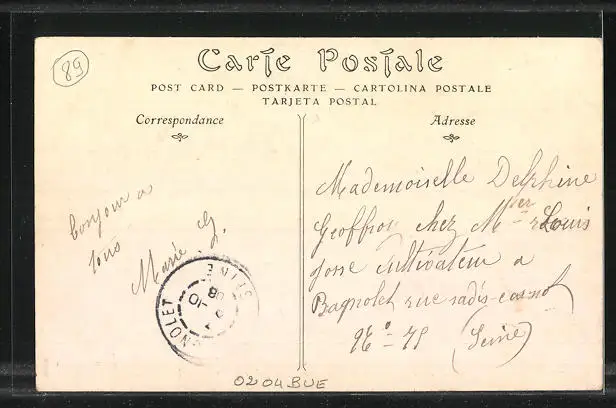 89
Carte Postale
POST CARD — POSTKARTE — CARTOLINA POSTALE
TARJETA POSTAL
Correspondance
Adresse
bonjour a
tous
Marie G.
Mademoiselle Delphine
Geoffroy chez Mr Louis
Josse cultivateur a
Bagnolet rue sadi-carnot
No 75 (Seine)
GNOLET
SEINE
10
08
0204BUE